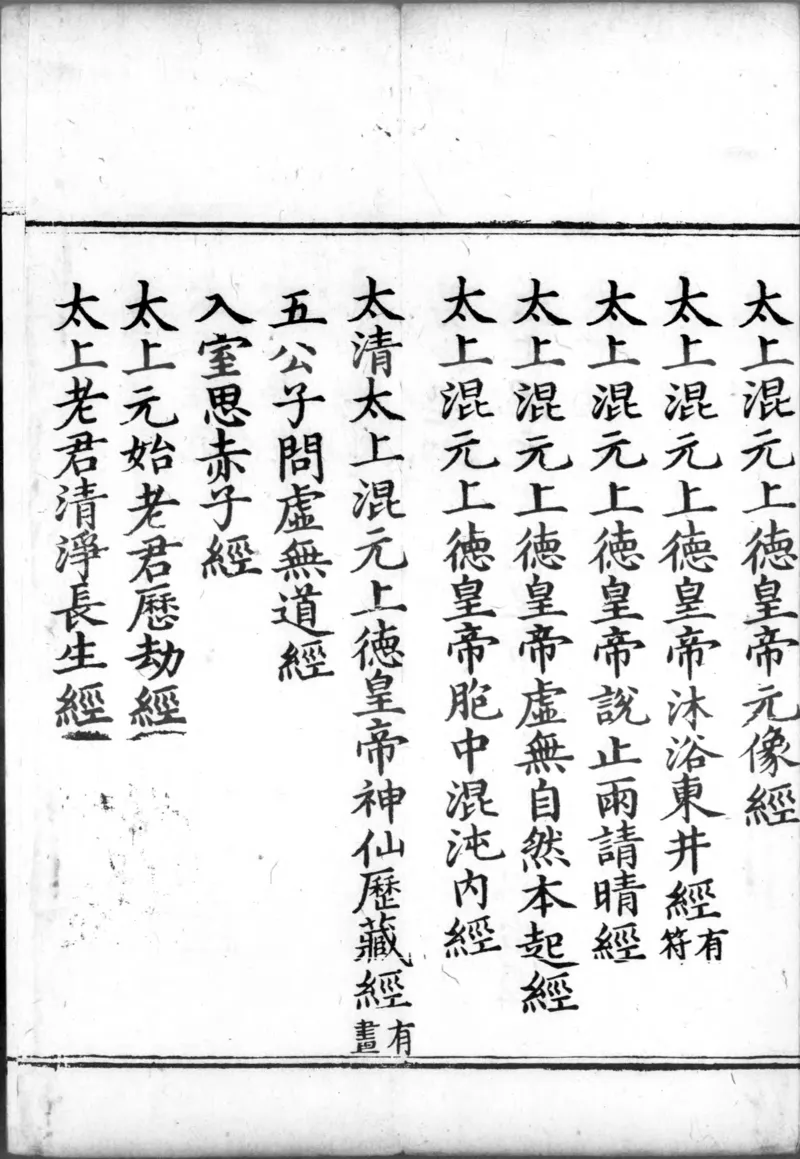 太上混元上德皇帝元像經
太上混元上德皇帝沐浴東井經有符
太上混元上德皇帝說止雨請晴經
太上混元上德皇帝虛無自然本起經
太上混元上德皇帝胞中混沌內經
太清太上混元上德皇帝神仙歷藏經有畫
五公子問虛無道經
入室思赤子經
太上元始老君歷劫經
太上老君清淨長生經